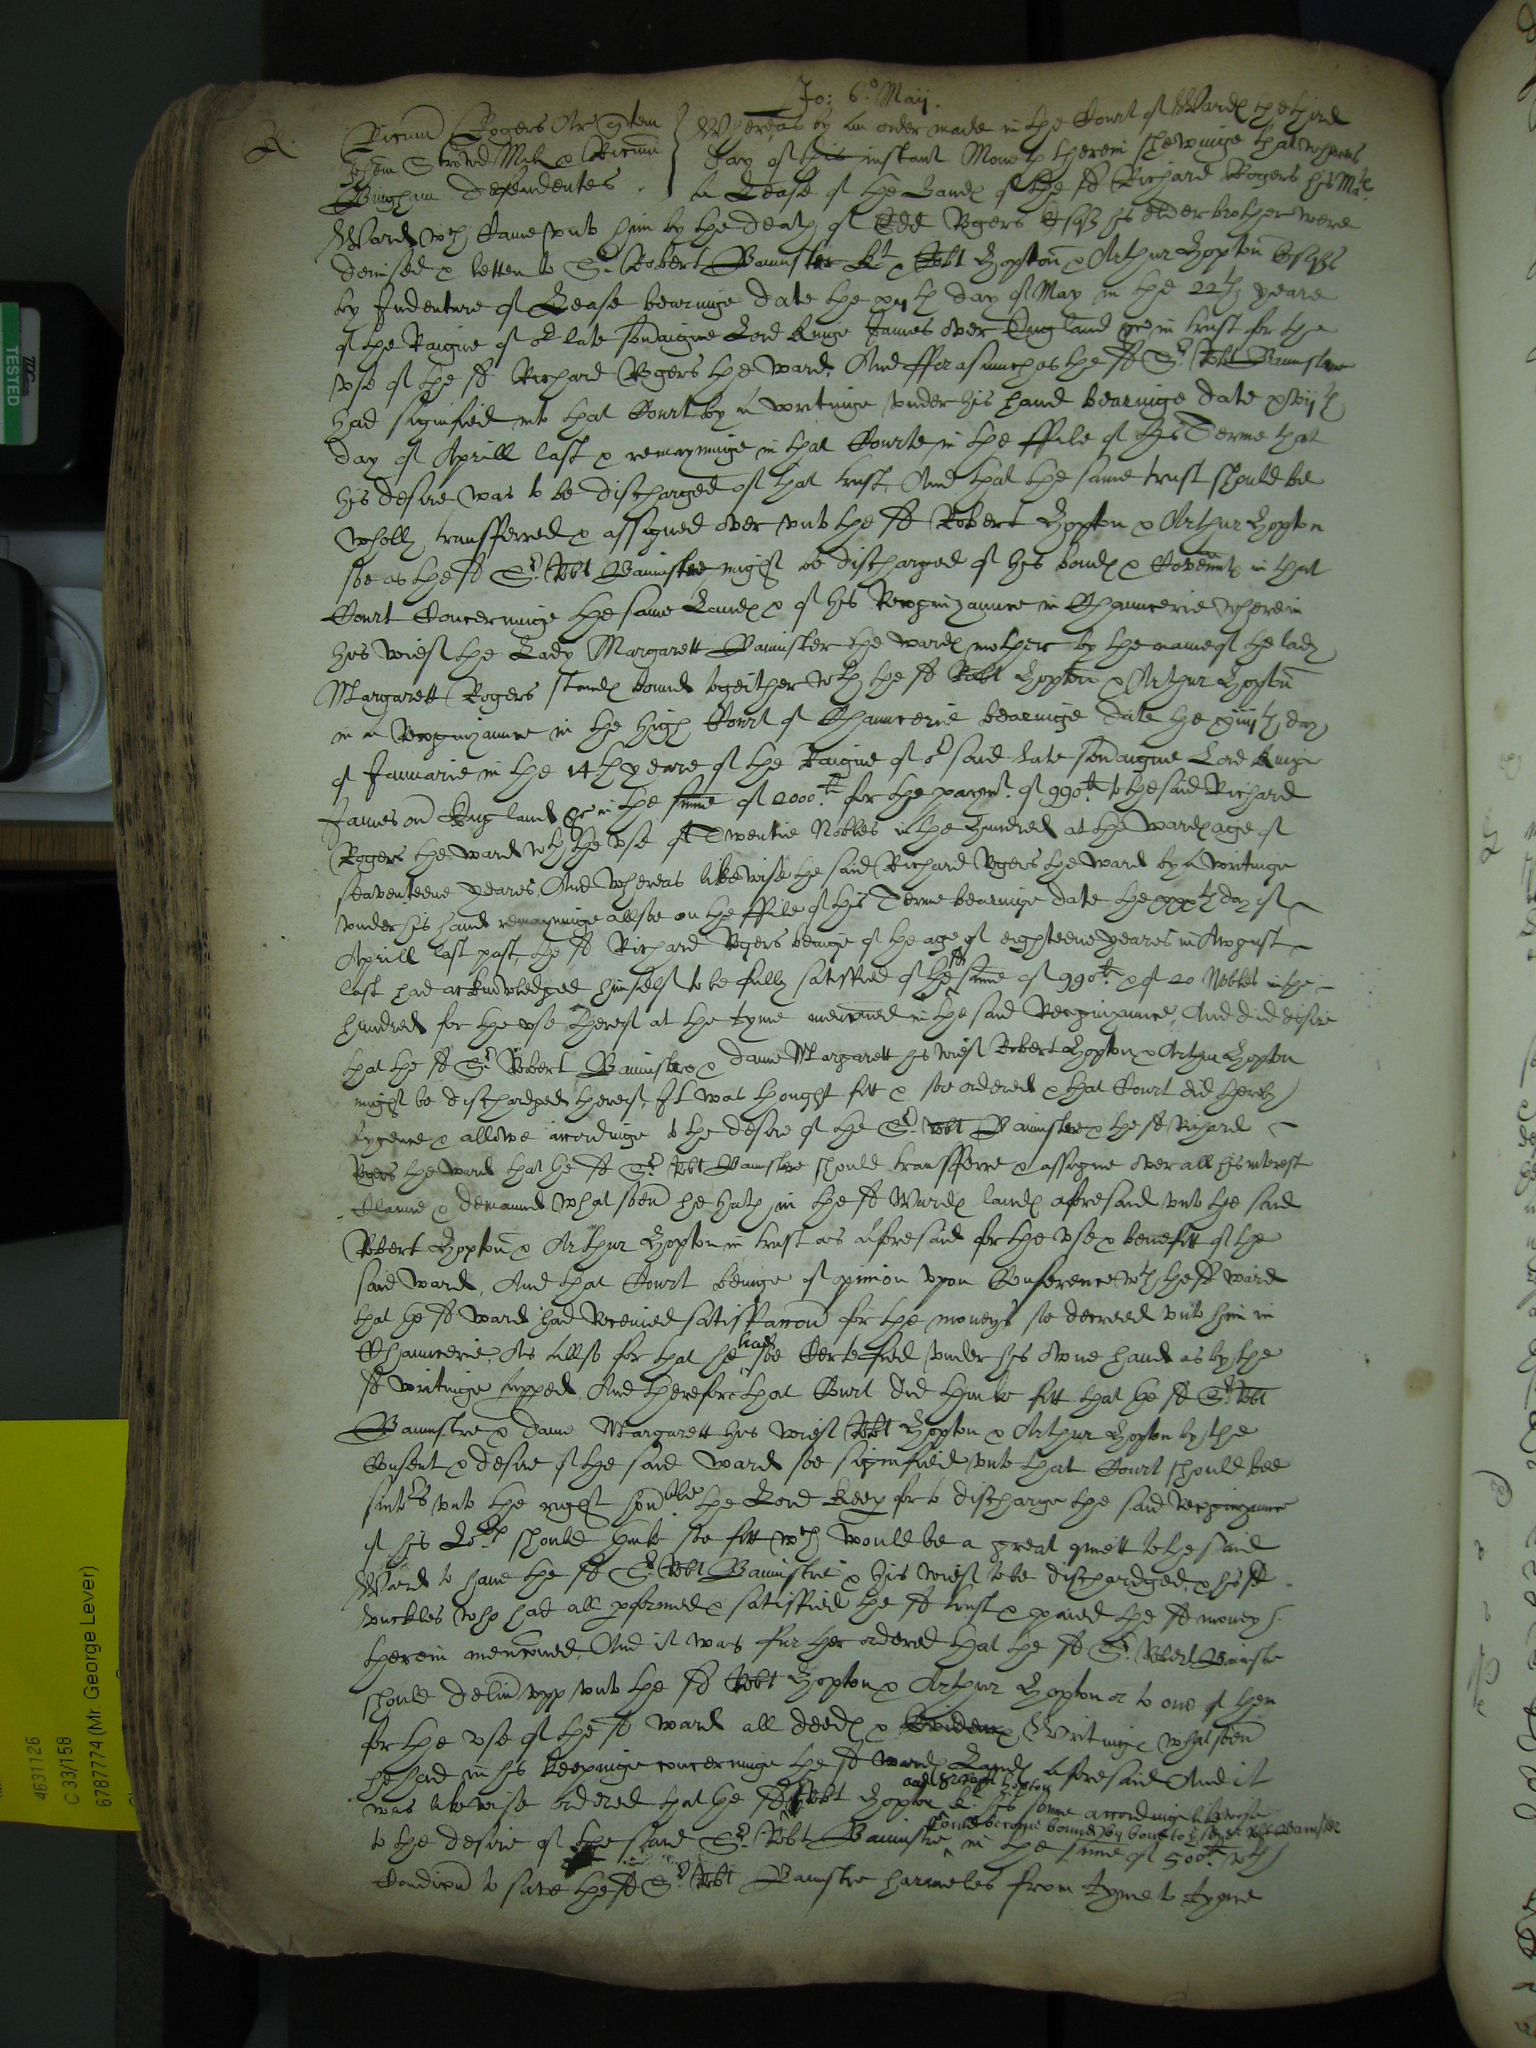 Jo: 6.o Maij.
R. Ricum Rogers Ar quem
Johem Strowd Mil & Ricum
Bingham Defendentes.
Whereas by an order made in the Court of Wardes the third
day of this instant Moneth therein shewinge that whereas
a Lease of the Landes of the sd Richard Rogers his Mats
Ward wch Came unto him by the death of Edd Rogers Esqr his elder brother were
demised & letten to Sr Robert Bannister Kt & Robt Hopton & Arthur Hopton Esqrs
by Indenture of Lease bearinge date the xijth day of May in the 22th yeare
of the Raigne of or late soveraigne Lord kinge James over England &c in trust for the
use of the sd Richard Rogers the ward. And fforasmuch as the sd Sr Robt Bannister
had signified unto that Court by a writinge under his hand bearinge date xxviijth
day of Aprill last & remayninge in that Courte in the ffile of this Terme that
his desire was to be discharged of that trust, And that the same trust should be
wholly transfferred & assigned over unto the sd Robert Hopton & Arthur Hopton
soe as the sd Sr Robt Bannister might be discharged of his bondes & Covennts in that
Court Concerninge the same Landes & of his Recognizaunce in Chauncerie wherein
his wief the Lady Margarett Bannister the wardes mother by the name of the lady
Margarett Rogers standes bound togeither wth the sd Robt Hopton & Arthur Hopton
in a Recognizaunce in the High Court of Chauncerie bearinge date the xiiijth day
of Januarie in the 14th yeare of the Raigne of or said late soveraigne Lord kinge
James over England &c in the some of 2000li for the paymt of 990li to the said Richard
Rogers the ward wth the use of Twentie Nobles in the Hundred at the wardes age of
seaventeene yeares, And whereas likewise the said Richard Rogers the ward by a writinge
under his hand remayninge allsoe on the ffile of this Terme bearinge date the xxxth day of
Aprill last past, the sd Richard Rogers beinge of the age of eighteene yeares in August
last had acknowledged himself to be fully satisfied of the sd some of 990li & of 20 Nobles in the
hundred for the use thereof at the tyme mencioned in the said Recognizaunce, And did desire
that the sd Sr Robert Bannister & dame Margarett his wief Robert Hopton & Arthur Hopton
might be dischardged thereof, It was thought fitt & soe ordered & that Court did thereby
lycence & allowe accordinge to the desire of the Sr Robt Bannister & the sd Richard
Rogers the ward that the sd Sr Robt Bannister should transfferre & assigne over all his interest
Clayme & demaund whatsoever he hath in the sd Wardes landes aforesaid unto the said
Robert Hopton & Arthur Hopton in trust as aforesaid for the use & benefitt of the
said ward, And that Court beinge of opinion upon Conference wth the sd ward
that the sd ward had Received satisfaccion for the moneys soe decreed unto him in
Chauncerie, As allso for that he hath soe Certefied under his owne hand as by the
sd writinge appeares. And therefore that Court did thinke fitt that the sd Sr Robt
Bannister & dame Margarett his wief Robt Hopton & Arthur Hopton by the
Consent & desire of the said ward soe signified unto that Court should bee
suitors unto the right honoble the Lord Keeper to discharge the said Recognizaunce
if his Lopp should thinke soe fitt wch would be a great quiett to the said
Ward to have the sd Sr Robt Bannister & his wief to be dischardged & his sd
unckles who had all performed & satisfied the sd trust & paied the sd moneys
therein mencioned, And it was further ordered that the sd Sr Robert Bannister
should deliver upp unto the sd Robt Hopton & Arthur Hopton or to one of them
for the use of the sd ward all deedes & Evidences Writinges whatsoever
he had in his keepinge concerninge the sd wardes Landes aforesaid And it
was likewise ordered that the sd Robt Hopton and Hopton & his sonne accordinge likewise
to the desire of the said Sr Robt Bannister should become bound by bond to the sd Sr Robt Bannister in the some of 500li wth
Condicion to save the sd Sr Robt Bannister harmeles from tyme to tyme
TESTED
4631126
C 33/158
6787774 (Mr. George Lever)